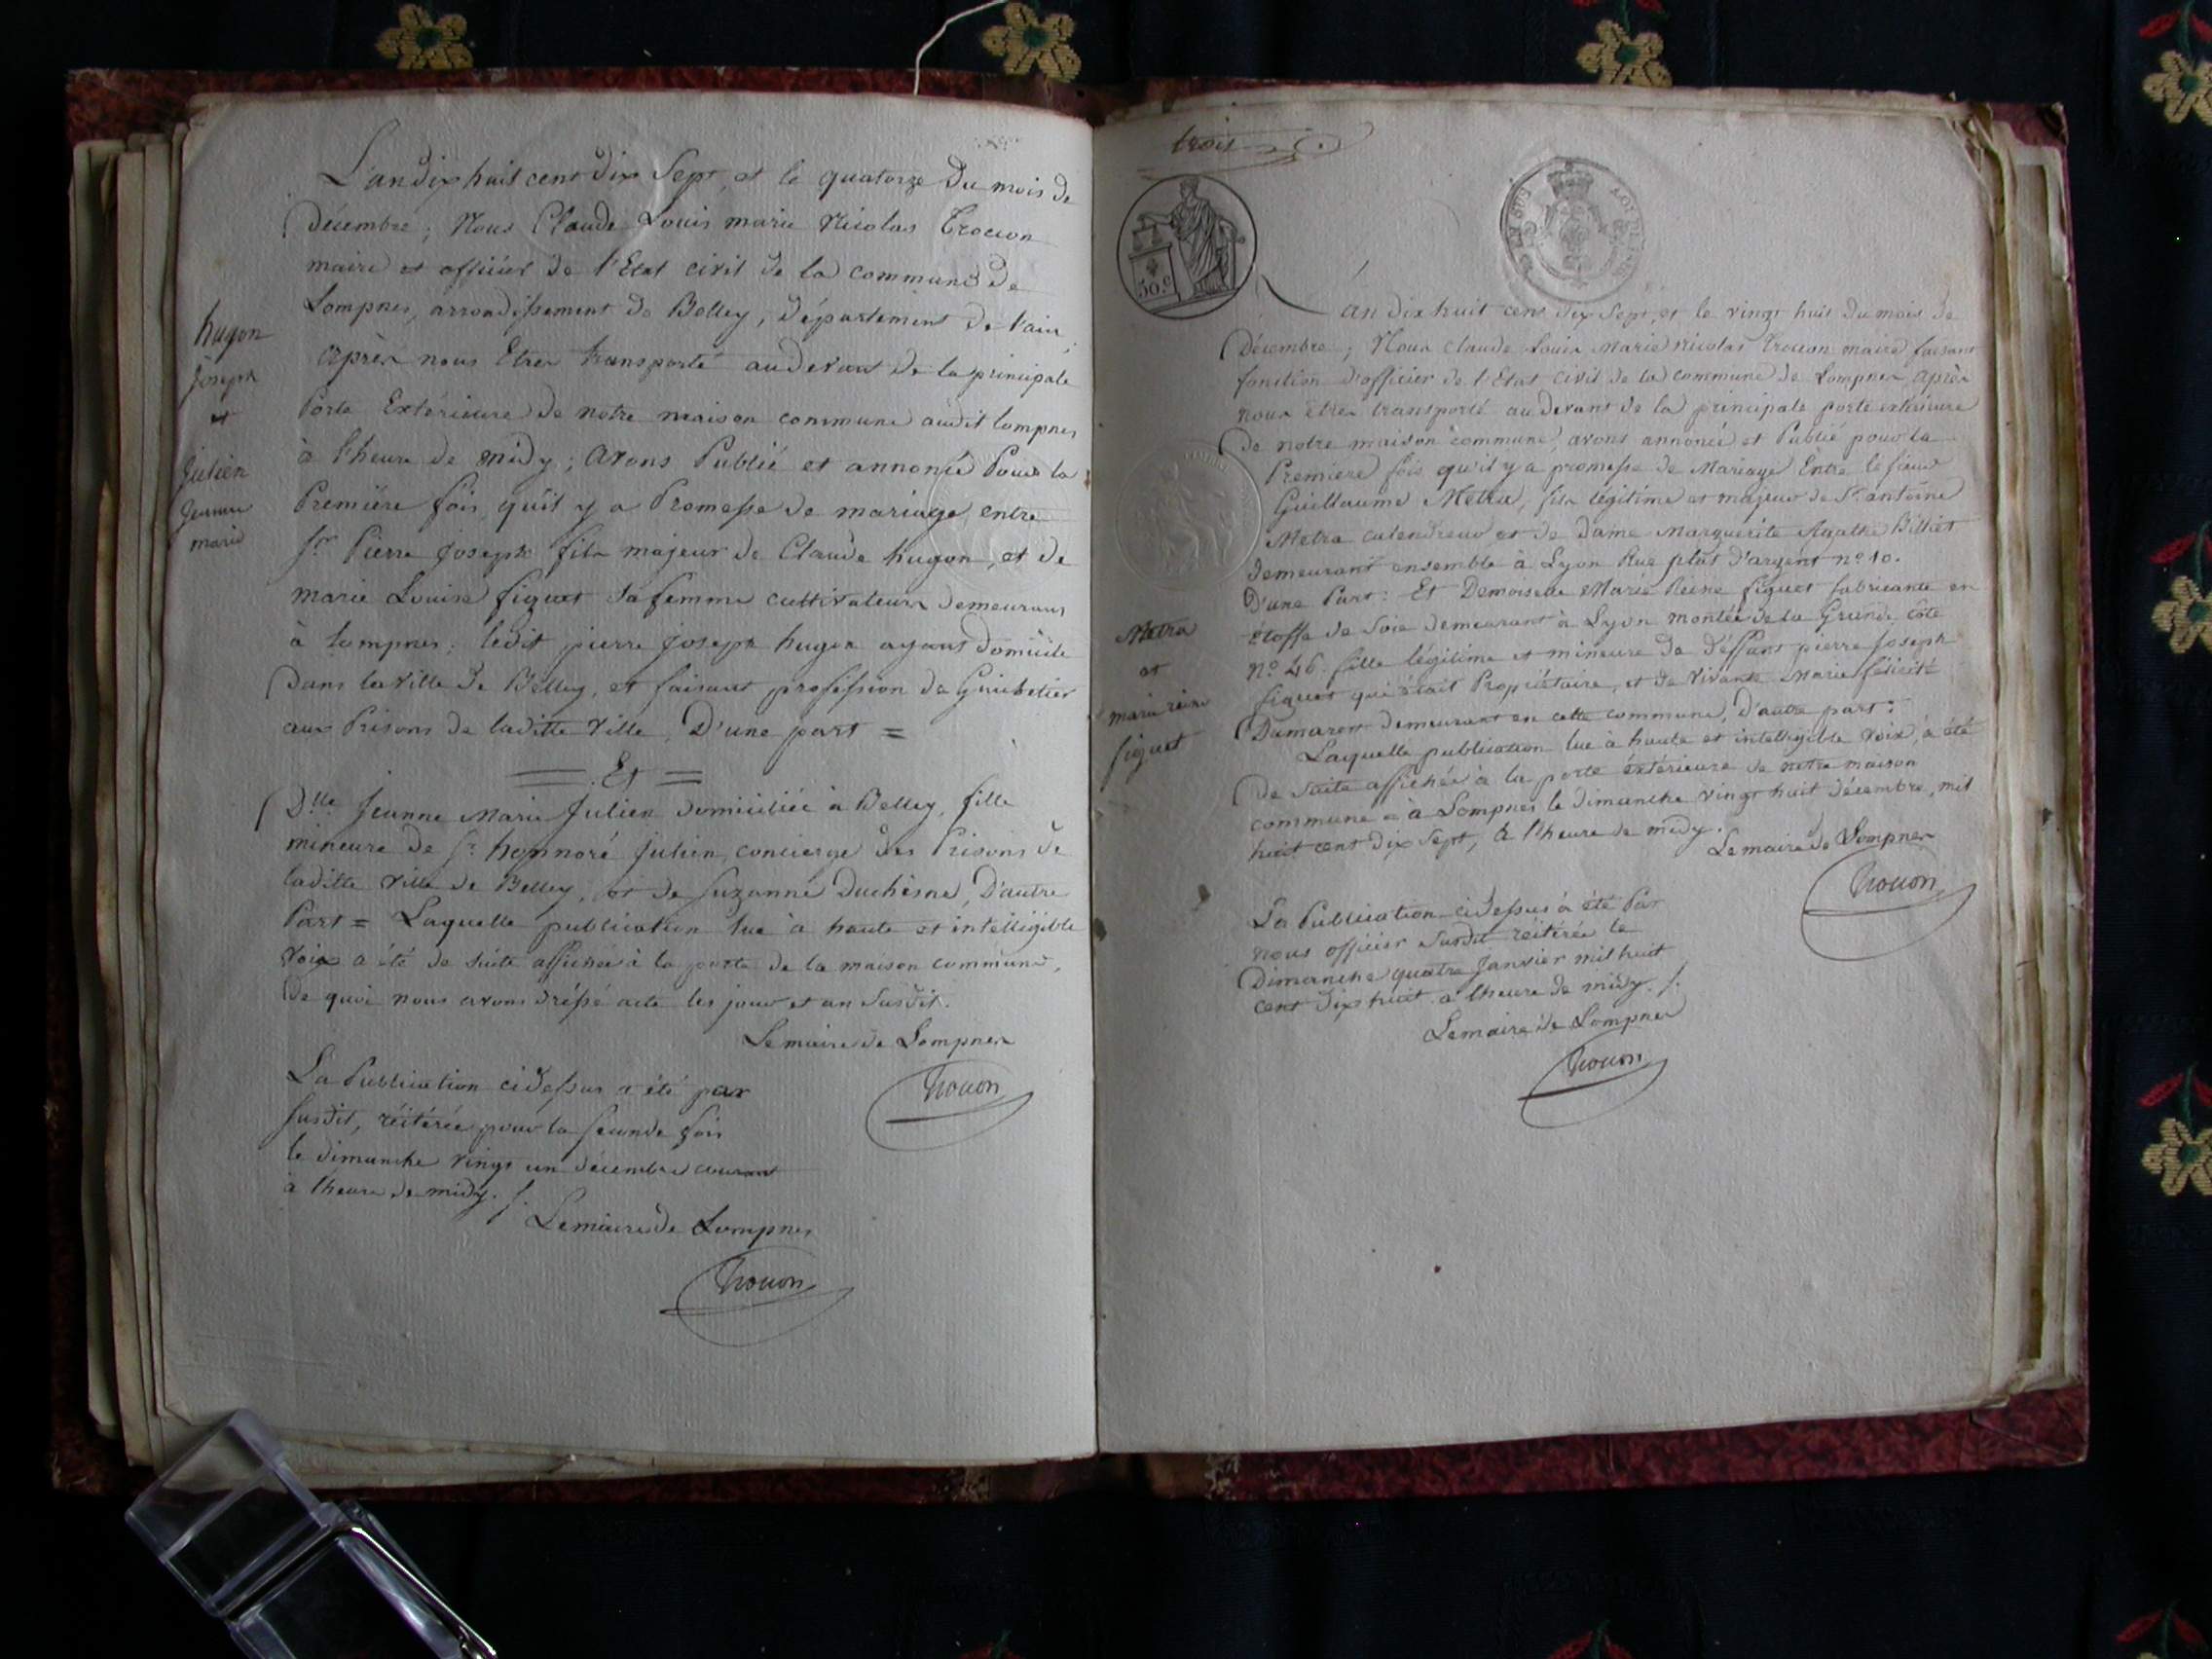 L'an dix huit cent dix Sept, et le quatorze du mois de
Décembre; Nous Claude Louis marie Nicolas Trocion
maire et officier de l'Etat civil de la commune de
Lompnes, arrondissement de Belley, département de l'ain,
après nous être transporté audevant de la principale
Porte Extérieure de notre maison commune audit lompnes
à l'heure de midy; avons Publié et annoncé Pour la
Première fois qu'il y a Promesse de mariage entre
Sr Pierre Joseph fils majeur de Claude hugon, et de
marie Louise figuet Sa femme cultivateurs demeurans
à lompnes; ledit pierre Joseph hugon ayant domicile
Dans la ville de Belley, et faisant profession de Guichetier
aux Prisons de laditte ville, D'une part =
= Et =
Dlle Jeanne Marie Julien domiciliée à Belley, fille
mineure de Sr honnoré Julien, concierge des Prisons de
laditte ville de Belley, et de Suzanne Duchêsne, D'autre
Part = Laquelle publication lue à haute et intelligible
voix a été de suite affichée à la porte de la maison commune,
De quoi nous avons dréssé acte les jour et an Susdit.
Le maire de Lompnes
Trocion
La Publication cidessus a été par
Susdit, réitérée pour la seconde fois
le dimanche vingt un décembre courant
à l'heure de midy. /.
Le maire de Lompnes
Trocion
hugon
Joseph
et
Julien
Jeanne
marie
trois
50.c
An dix huit cent dix Sept, et le vingt huit du mois de
Décembre; Nous Claude Louis Marie Nicolas Trocion maire faisant
fonction d'officier de l'Etat civil de la commune de Lompnes, après
nous être transporté audevant de la principale porte extérieure
de notre maison commune, avons annoncé et Publié pour la
Première fois qu'il y a promesse de Mariage Entre le Sieur
Guillaume Metra, fils légitime et majeur de Sr antoine
Metra calendreur et de Dame Marguerite Agathe Billiet
demeurant ensemble à Lyon Rue plat d'argent no 10.
D'une Part: Et Demoiselle Marie Reine figuet fabricante en
étoffe de Soie demeurant à Lyon montée de la Grande Côte
No 46. fille légitime et mineure de déffunt pierre Joseph
figuet qui était Propriétaire, et de vivante Marie félicité
Dumarest demeurant en cette commune, D'autre part:
Laquelle publication lue à haute et intelligible voix, à été
De Suite affichée à la porte extérieure de notre maison
commune à Lompnes le dimanche vingt huit décembre, mil
huit cent dix Sept, à l'heure de midy.
Le maire de Lompnes
Trocion
La Publication cidessus à été Par
nous officier Susdit réitérée le
Dimanche quatre Janvier mil huit
cent dix huit à l'heure de midy. /.
Le maire de Lompnes
Trocion
Metra
et
marie reine
figuet